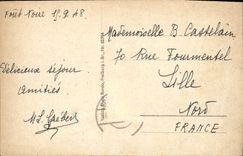 Forêt Noire 15.9.48
Délicieux séjour
Amitiés
Mademoiselle B. Castelain
70 Rue Fourmentel
Lille
Nord
FRANCE